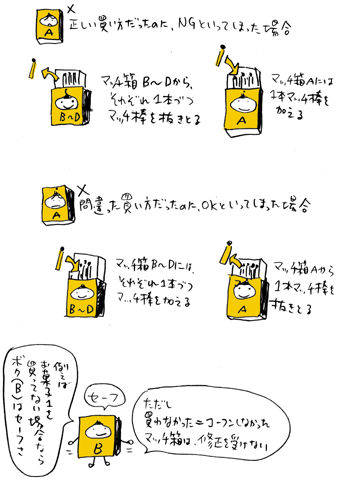 × 正しい買い方だったのに、NGといってしまった場合
A
マッチ箱 B〜Dから、
それぞれ1本づつ
マッチ棒を抜きとる
B〜D
マッチ箱Aには
1本マッチ棒を
加える
A
× 間違った買い方だったのに、OKといってしまった場合
A
マッチ箱B〜Dには、
それぞれ1本づつ
マッチ棒を加える
B〜D
マッチ箱Aから
1本マッチ棒を
抜きとる
A
例えば
お菓子1を
買ってない場合なら
ボク(B)はセーフさ
セーフ
B
ただし
買わなかった=コーフンしなかった
マッチ箱は、修正を受けない